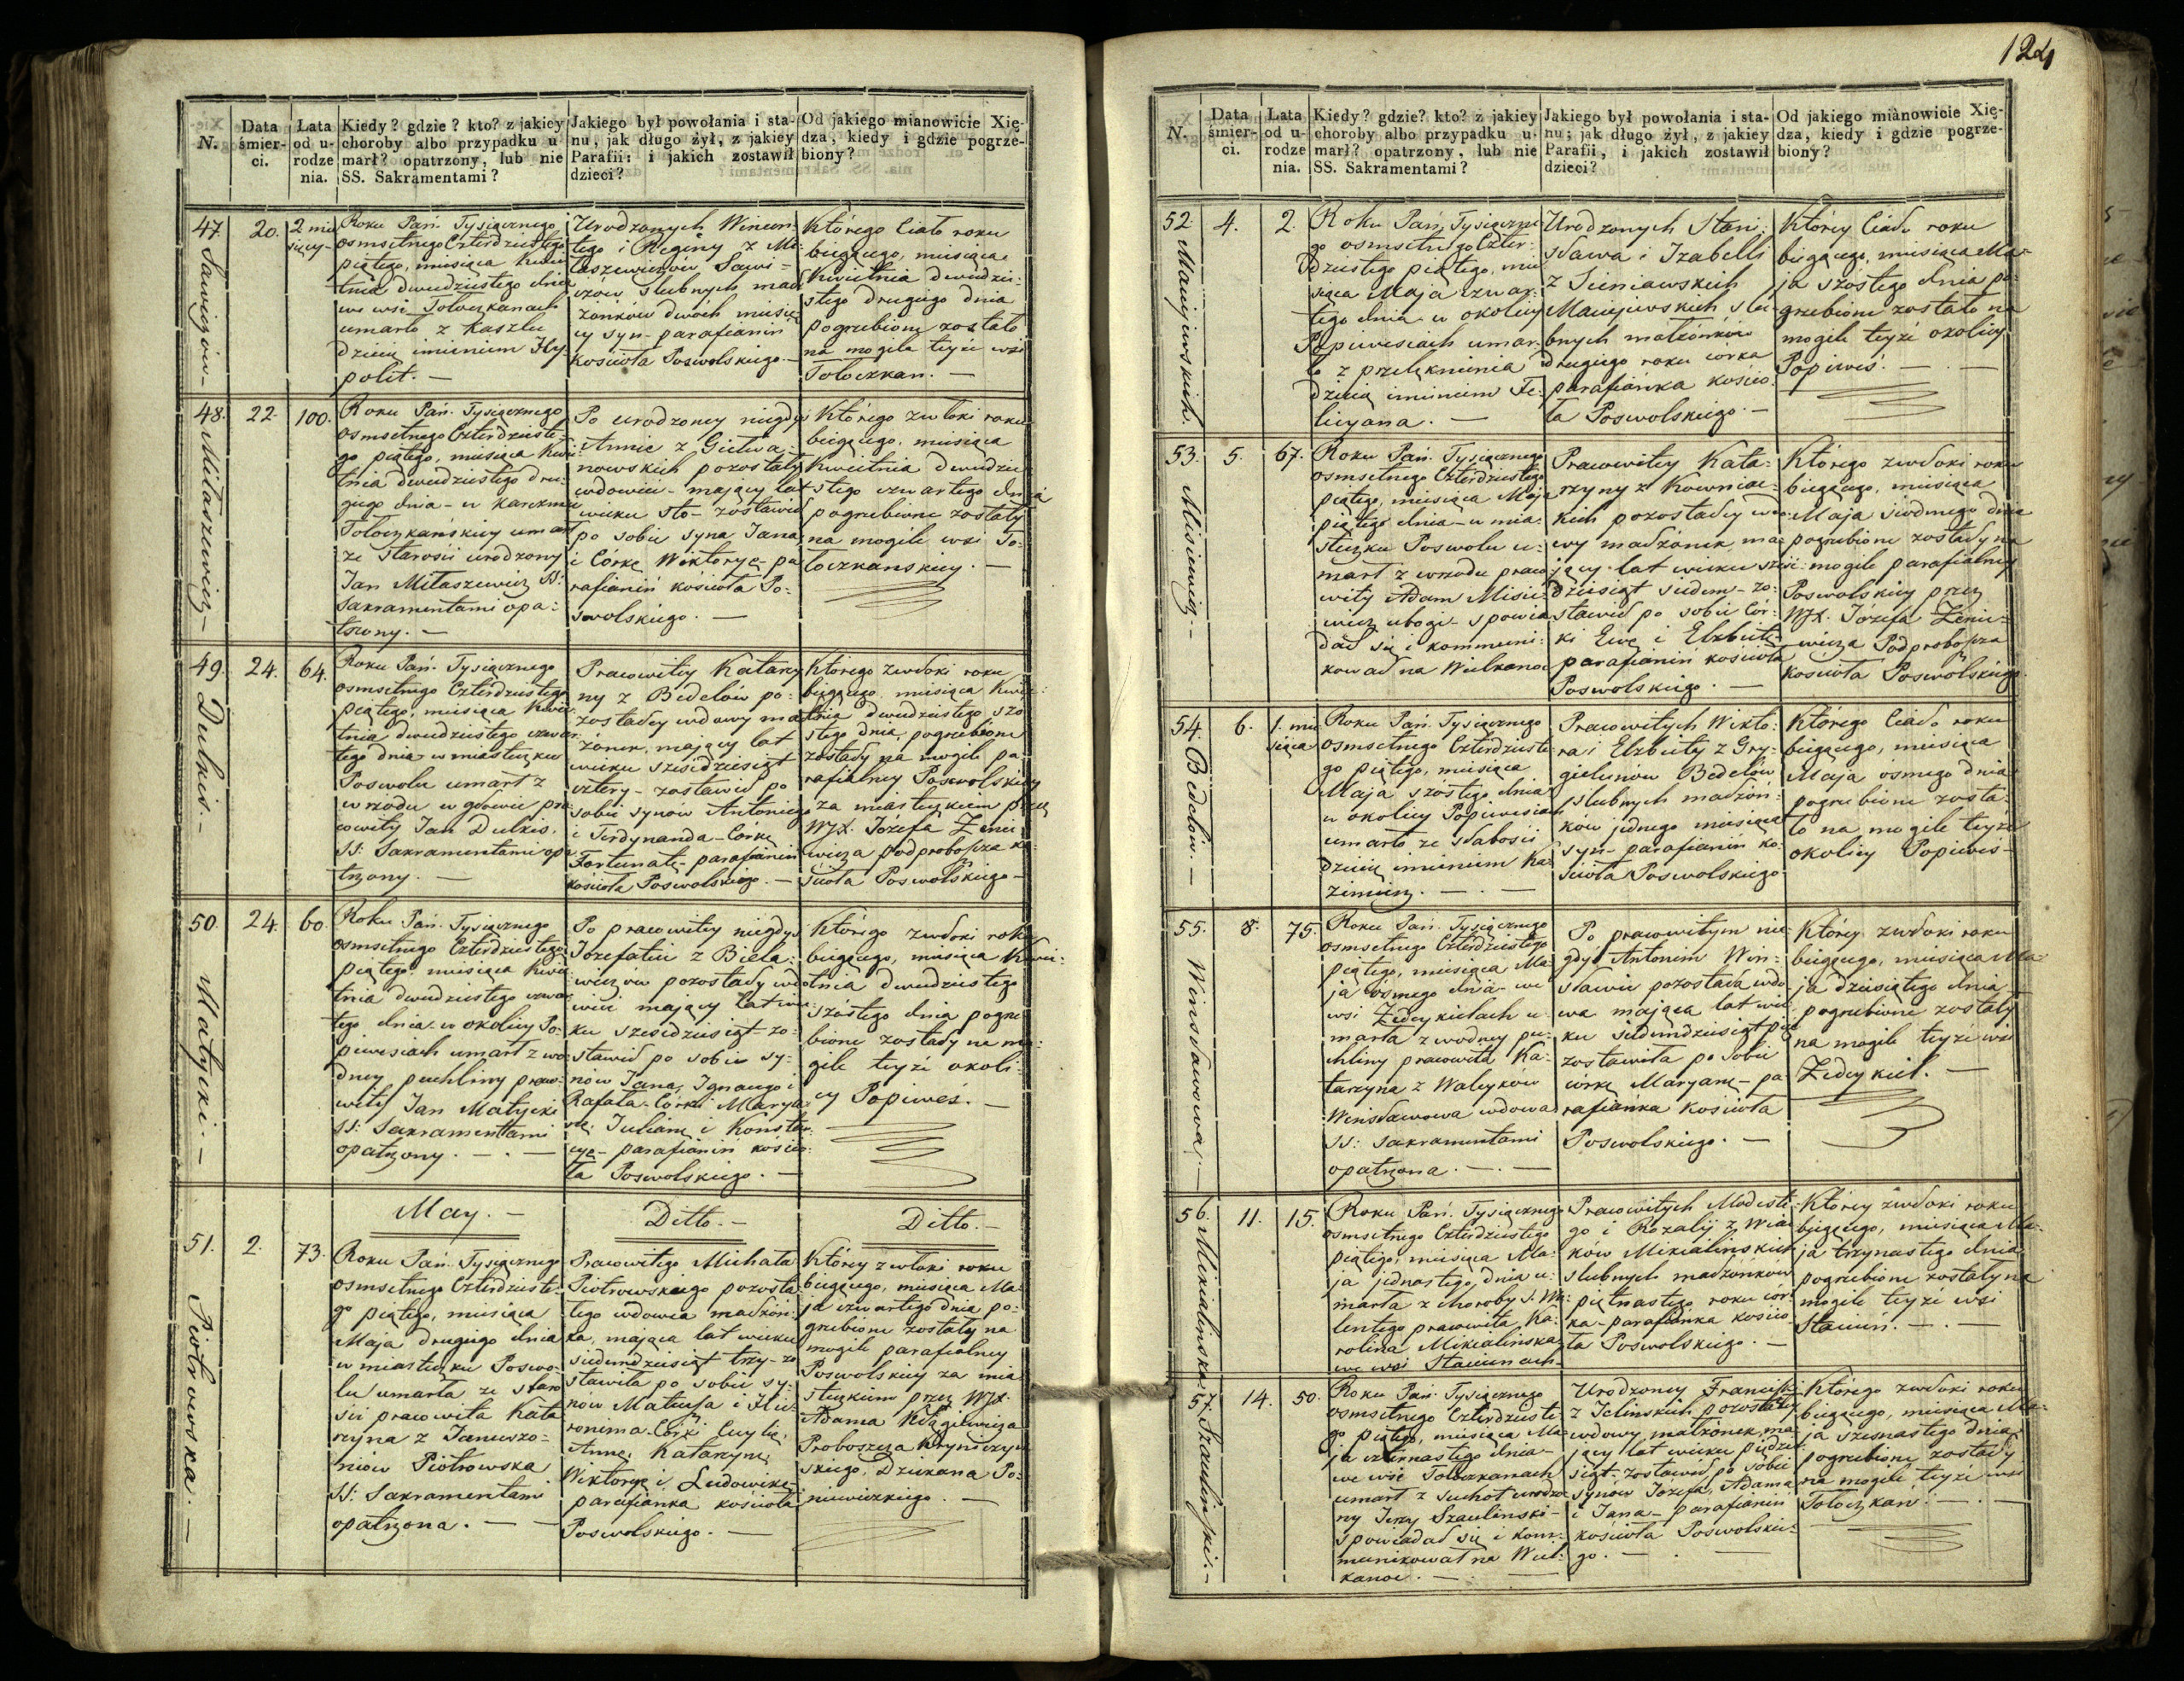 N.
Data śmierci.
Lata od urodzenia.
Kiedy? gdzie? kto? z jakiey
choroby albo przypadku u-
marł? opatrzony, lub nie
SS. Sakramentami?
Jakiego był powołania i sta-
nu, jak długo żył, z jakiey
Parafii; i jakich zostawił
dzieci?
Od jakiego mianowicie Xię-
dza, kiedy i gdzie pogrze-
biony?
47.
Sawiczów
20.
2 mie
sięcy
Roku Pań. Tysiącznego
osmsetnego Czterdziestego
piątego, miesiąca Kwie
tnia dwudziestego dnia
we wsi Tołoczkanach
umarło z kaszlu
dziecię imieniem Hy-
polit. —
Urodzonych Wincen-
tego i Reginy z Mi-
łaszewiczów Sawi-
czów slubnych mał
żonków dwóch miesię
cy syn - parafianin
kościoła Poswolskiego —
Którego Ciało roku
biegącego, miesiąca
Kwietnia dwudzie-
stego drugiego dnia
pogrzebione zostało
na mogile teyże wsi
Tołoczkan. —
48.
Miłaszewicz
22.
100.
Roku Pań. Tysiącznego
osmsetnego Czterdzieste-
go piątego, miesiąca Kwie
tnia dwudziestego dru-
giego dnia - w karczmie
Tołoczkańskiey umarł
ze starości urodzony
Jan Miłaszewicz SS:
Sakramentami opa-
trzony. —
Po urodzoney niegdy
Annie z Gietwa-
nowskich pozostały
wdowiec - mający lat
wieku sto - zostawił
po sobie syna Jana
i Córkę Wiktoryę - pa
rafianin kościoła Po-
swolskiego. —
Którego zwłoki roku
biegącego, miesiąca
Kwietnia dwudzie
stego czwartego dnia
pogrzebione zostały
na mogile wsi To-
łoczkanskiey. —
49.
Dulkis.
24.
64.
Roku Pań. Tysiącznego
osmsetnego Czterdziestego
piątego, miesiąca Kwie
tnia dwudziestego czwar
tego dnia w miasteczku
Poswolu umarł z
wrzodu w głowie pra
cowity Jan Dulkis,
SS: Sakramentami opa
trzony. —
Pracowitey Katarzy
ny z Bedelów po-
zostałey wdowy mał
żonek, mający lat
wieku sześćdziesiąt
cztery - zostawił po
sobie synów Antoniego
i Ferdynanda - Córkę
Fortunatę - parafianin
kościoła Poswolskiego. —
Którego zwłoki roku
biegącego miesiąca Kwie-
tnia dwudziestego szó
stego dnia, pogrzebione
zostały na mogile pa
rafialney Poswolskiey
za miasteczkiem przez
WJX. Józefa Zenie-
wicza podprobosza ko-
ścioła Poswolskiego —
50.
Małycki.
24.
60.
Roku Pań. Tysiącznego
osmsetnego Czterdziestego
piątego, miesiąca Kwie
tnia dwudziestego czwar
tego dnia w okolicy Po-
piwesiach umarł z wo
dney puchliny praco-
wity Jan Małycki
SS: Sakramentami
opatrzony. —
Po pracowitey niegdyś
Jozefatie z Biela-
wiczów pozostały wdo
wiec mający lat wie
ku sześćdziesiąt - zo-
stawił po sobie sy-
nów Jana, Ignacego i
Rafała - Córki Marya
nę, Juliannę i Konstan-
cyę - parafianin kościo
ła Poswolskiego. —
Którego zwłoki roku
biegącego, miesiąca Kwie-
tnia dwudziestego
szóstego dnia pogrze
bione zostały na mo-
gile teyże okoli-
cy Popiweś. —
May. —
Ditto. —
Ditto. —
51.
Piotrowska.
2.
73.
Roku Pań. Tysiącznego
osmsetnego Czterdzieste-
go piątego, miesiąca
Maja drugiego dnia
w miasteczku Poswo-
lu umarła ze staro
ści pracowita Kata
rzyna z Januszo-
niów Piotrowska
SS: Sakramentami
opatrzona. —
Pracowitego Michała
Piotrowskiego pozosta
łego wdowca małżon-
ka, mająca lat wieku
siedmdziesiąt trzy - zo
stawiła po sobie sy-
nów Mateusza i Hie-
ronima - Córki Cecylię,
Annę, Katarzynę
Wiktoryę i Ludowikę
parafianka kościoła
Poswolskiego. —
Którey zwłoki roku
biegącego, miesiąca Ma-
ja czwartego dnia po-
grzebione zostały na
mogile parafialney
Poswolskiey za mia
steczkiem przez WJX.
Adama Kołągiewicza
Proboszcza Krynicczyn
skiego, Dziekana Po-
niewiezkiego. —
124
N.
Data śmierci.
Lata od urodzenia.
Kiedy? gdzie? kto? z jakiey
choroby albo przypadku u-
marł? opatrzony, lub nie
SS. Sakramentami?
Jakiego był powołania i sta-
nu; jak długo żył, z jakiey
Parafii, i jakich zostawił
dzieci?
Od jakiego mianowicie Xię-
dza, kiedy i gdzie pogrze-
biony?
52.
Maniejewskich.
4.
2.
Roku Pań. Tysiączne
go osmsetnego Czter-
dziestego piątego, mie
siąca Maja czwar-
tego dnia w okolicy
Popiwesiach umar-
ło z przelęknienia
dziecię imieniem Fe-
licyana. —
Urodzonych Stani-
sława i Izabelli
z Sieniawskich
Maniejewskich slu-
bnych małżonków
drugiego roku córka
parafianka kościo-
ła Poswolskiego. —
Którey Ciało roku
biegącego, miesiąca Ma-
ja szóstego dnia po-
grzebione zostało na
mogile teyże okolicy
Popiweś. —
53.
Misiewicz
5.
67.
Roku Pań. Tysiącznego
osmsetnego Czterdziestego
piątego, miesiąca Maja
piątego dnia - w mia-
steczku Poswolu u-
marł z wrzodu praco
wity Adam Misie-
wicz ubogi - spowia
dał się i kommuni-
kował na Wielkanoc
Pracowitey Kata-
rzyny z Kowniac-
kich pozostałey wdo-
wy małżonek, ma-
jący lat wieku sześć-
dziesiąt siedem - zo-
stawił po sobie Cór-
ki Ewę i Elżbietę
parafianin kościoła
Poswolskiego. —
Którego zwłoki roku
biegącego, miesiąca
Maja siódmego dnia
pogrzebione zostały na
mogile parafialney
Poswolskiey przez
WJX. Józefa Zenie-
wicza Podprobosza
kościoła Poswolskiego.
54.
Bedelów.
6.
1. mie
siąca
Roku Pań. Tysiącznego
osmsetnego Czterdzieste-
go piątego, miesiąca
Maja szóstego dnia
w okolicy Popiwesiach
umarło ze słabości
dziecię imieniem Ka-
zimierz. —
Pracowitych Wikto-
ra i Elżbiety z Gry-
gielunów Bedelów
slubnych małżon-
ków jednego miesiąca
syn - parafianin ko-
ścioła Poswolskiego
Którego Ciało roku
biegącego, miesiąca
Maja ósmego dnia
pogrzebione zosta-
ło na mogile teyże
okolicy Popiweś
55.
Winsławowa.
8.
75.
Roku Pań. Tysiącznego
osmsetnego Czterdziestego
piątego, miesiąca Ma-
ja ósmego dnia - we
wsi Zedeykielach u-
marła z wodney pu-
chliny pracowita Ka-
tarzyna z Waleyków
Winsławowa wdowa
SS: Sakramentami
opatrzona. —
Po pracowitym nie-
gdy Antonim Win-
sławie pozostała wdo
wa mająca lat wie
ku siedmdziesiąt pięć
zostawiła po sobie
córkę Maryannę - pa
rafianka kościoła
Poswolskiego. —
Którey zwłoki roku
biegącego, miesiąca Ma-
ja dziesiątego dnia
pogrzebione zostały
na mogile teyże wsi
Zedeykiel. —
56.
Mikialinska
11.
15.
Roku Pań. Tysiącznego
osmsetnego Czterdziestego
piątego, miesiąca Ma-
ja jednastego dnia u-
marła z choroby S. Wa-
lentego pracowita Ka-
rolina Mikialinska
we wsi Staciunach
Pracowitych Modeste
go i Rozalij z Wia
ków Mikialinskich
slubnych małżonków
piętnastego roku cór-
ka - parafianka kościo
ła Poswolskiego —
Którey zwłoki roku
biegącego, miesiąca Ma-
ja trzynastego dnia
pogrzebione zostały na
mogile teyże wsi
Staciun. —
57.
Szaulinski.
14.
50.
Roku Pań. Tysiącznego
osmsetnego Czterdzieste
go piątego, miesiąca Ma-
ja czternastego dnia -
we wsi Tołoczkanach
umarł z suchot urodzo
ny Jerzy Szaulinski -
spowiadał się i kom-
munikował na Wiel-
kanoc. —
Urodzoney Franciszki
z Jelinskich pozostałey
wdowy małżonek, ma-
jący lat wieku pięćdzie-
siąt - zostawił po sobie
synów Jozefa, Adama
i Jana - parafianin
kościoła Poswolskie-
go. —
Którego zwłoki roku
biegącego, miesiąca Ma-
ja szesnastego dnia
pogrzebione zostały
na mogile teyże wsi
Tołoczkan. —